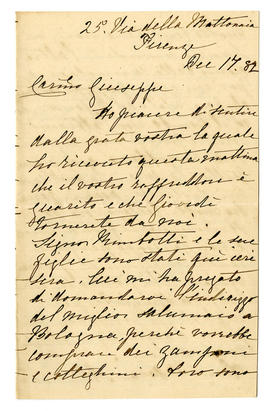 25. Via della Mattonaia
Firenze
Dec 17. 82
Carino Giuseppe
Ho piacere di sentire
dalla grata vostra la quale
ho ricevuto questa mattina
che il vostro raffreddore è
guarito e che Giovedì
tornerete da noi.
Signor e le sue
figlie sono stati qui ieri
sera. Lui mi ha pregato
di domandarvi l'indirizzo
del miglior salumaio a
Bologna, perché vorrebbe
comprare dei zamponi
e coteghini. Loro sono